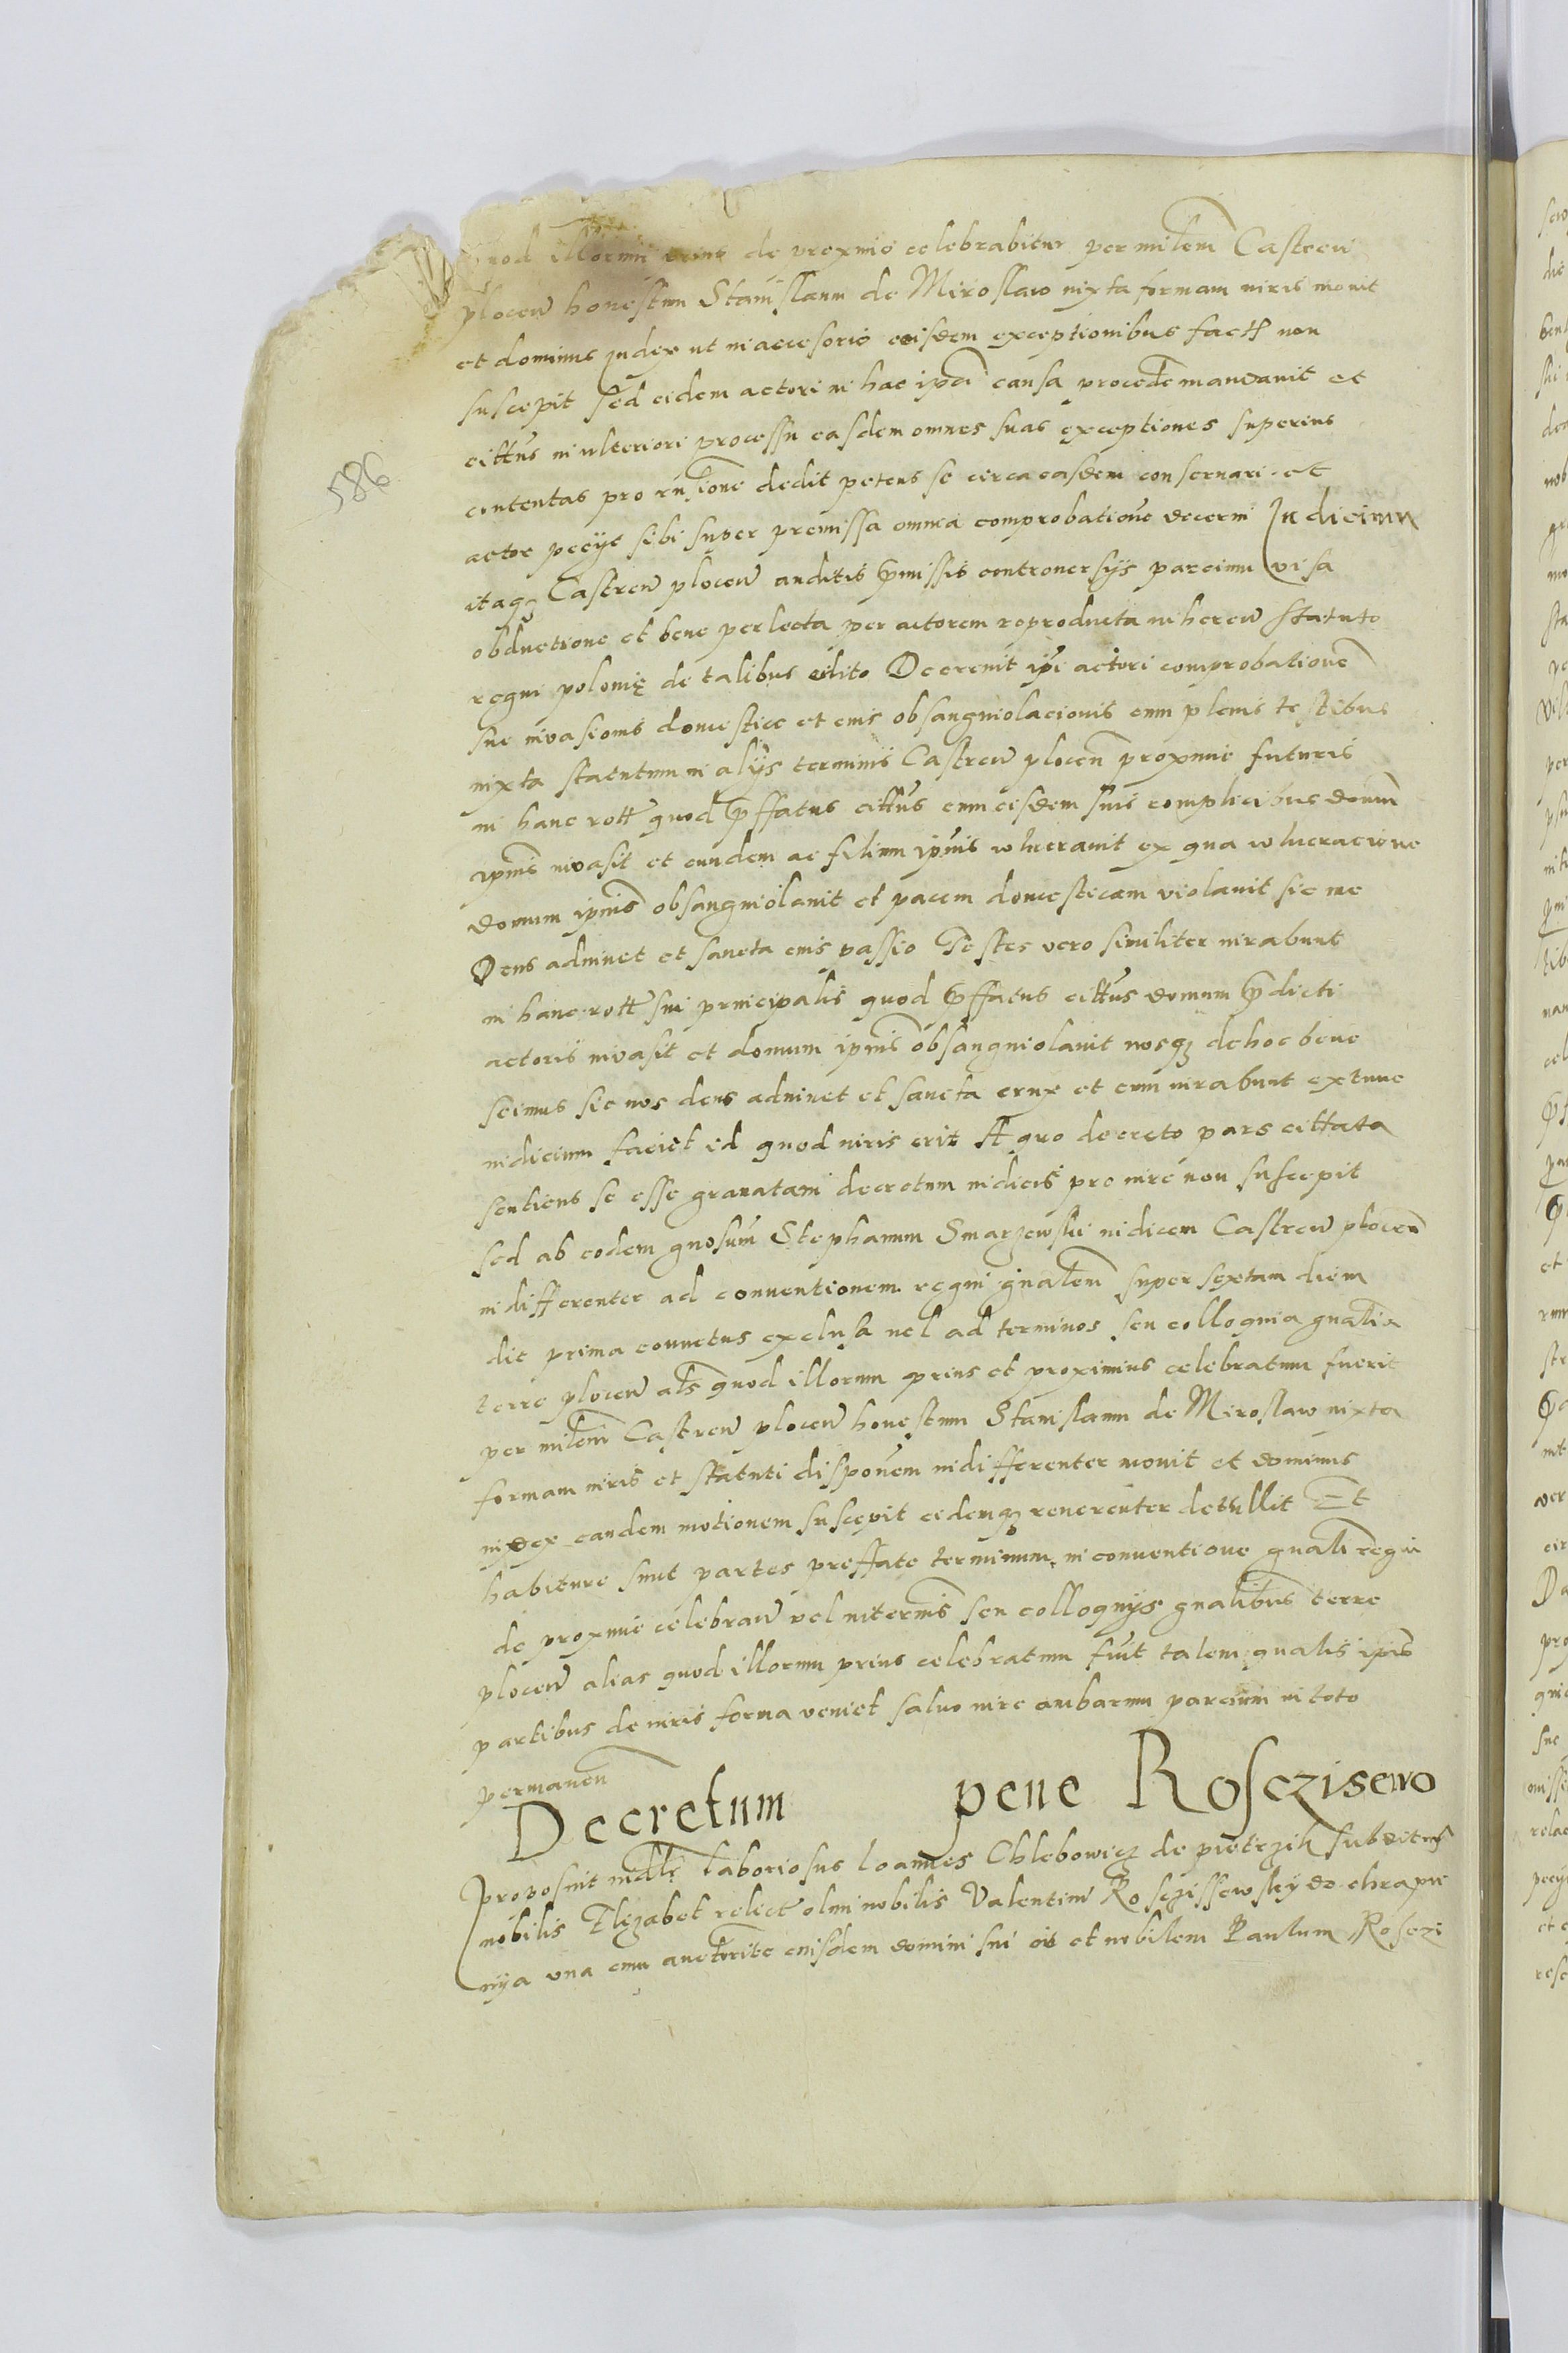 quod illorum prius de proximo celebrabitur per milem̃ Castren̄
plocen̄ honestum Stanislaum de Miroslaw iuxta formam iuris mouit
et dominus iudex ut in accesorio eisdem exceptionibus fact non
suscepit sed eidem actori in hac ipā causa procedē mandauit et
cittus in ulteriori processu easdem omnes suas exceptiones superius
contentas pro rn̄sione dedit petens se circa easdem conseruari et
actor peciit sibi super premissa omnia comprobatione decerni Iudicium
itaq3 Castren̄ plocen̄ auditis p̄missis controuersijs parcium visa
obductione et bene perlecta per actorem reproducta inheren̄ statuto
regni polonię de talibus edito Decreuit ip̄i actori comprobationē
sue inuasionis domestice et eius obsanguiolacionis cum plenis testibus
iuxta statutum in alijs terminis Castren̄ plocen̄ proxime futuris
in hanc rott quod p̄ffatus cittus cum eisdem suis complicibus domū
ipius inuasit et eundem ac filium ipius wlnerauit ex qua wlneracione
domum ipius obsanguiolauit et pacem domesticam violauit sic me
Deus adiuuet et sancta eius passio Testes vero similiter iurabunt
in hanc rott sui principalis quod p̄ffatus cittus domum p̄dicti
actoris inuasit et domum ipius obsanguiolauit nosq3 de hoc bene
scimus sic nos deus adiuuet et sancta crux et cum iurabunt extunc
iudicium faciet id quod iuris erit A quo decreto pars cittata
sentiens se esse grauatam decretum iudicis pro iure non suscepit
sed ab eodem gnosum Stephanum Smarzewski iudicem Castren̄ plocen̄
indifferenter ad conuentionem regni gnalem super sextam diem
die prima conuetus exclusa uel ad terminos seu colloquia gnalia
terre plocen̄ als quod illorum prius et proximius celebratum fuerit
per milem̃ Castren̄ plocen̄ honestum Stanislaum de Miroslaw iuxta
formam iuris et statuti disponem indifferenter mouit et dominus
iudex eandem motionem suscepit eidemq3 reuerenter detullit Et
habiture sunt partes preffate terminum in conuentione gnali regni
de proxime celebran̄ vel in terminis seu colloquijs gnalibus terre
plocen̄ alias quod illorum prius celebratum fuit talem qualis ipis
partibus de iuris forma veniet saluo iure ambarum parcium in toto
permanen̄
Decretum pene Rosczisewo
Proposuit laboriosus Ioannes Chlebowicz de subditus
nobilis Elizabet relict olim nobilis Valentini Rosczissewsky de chrapu
nya una cum auctorite eiusdem domini sui et nobilem Paulum Rosczi
586